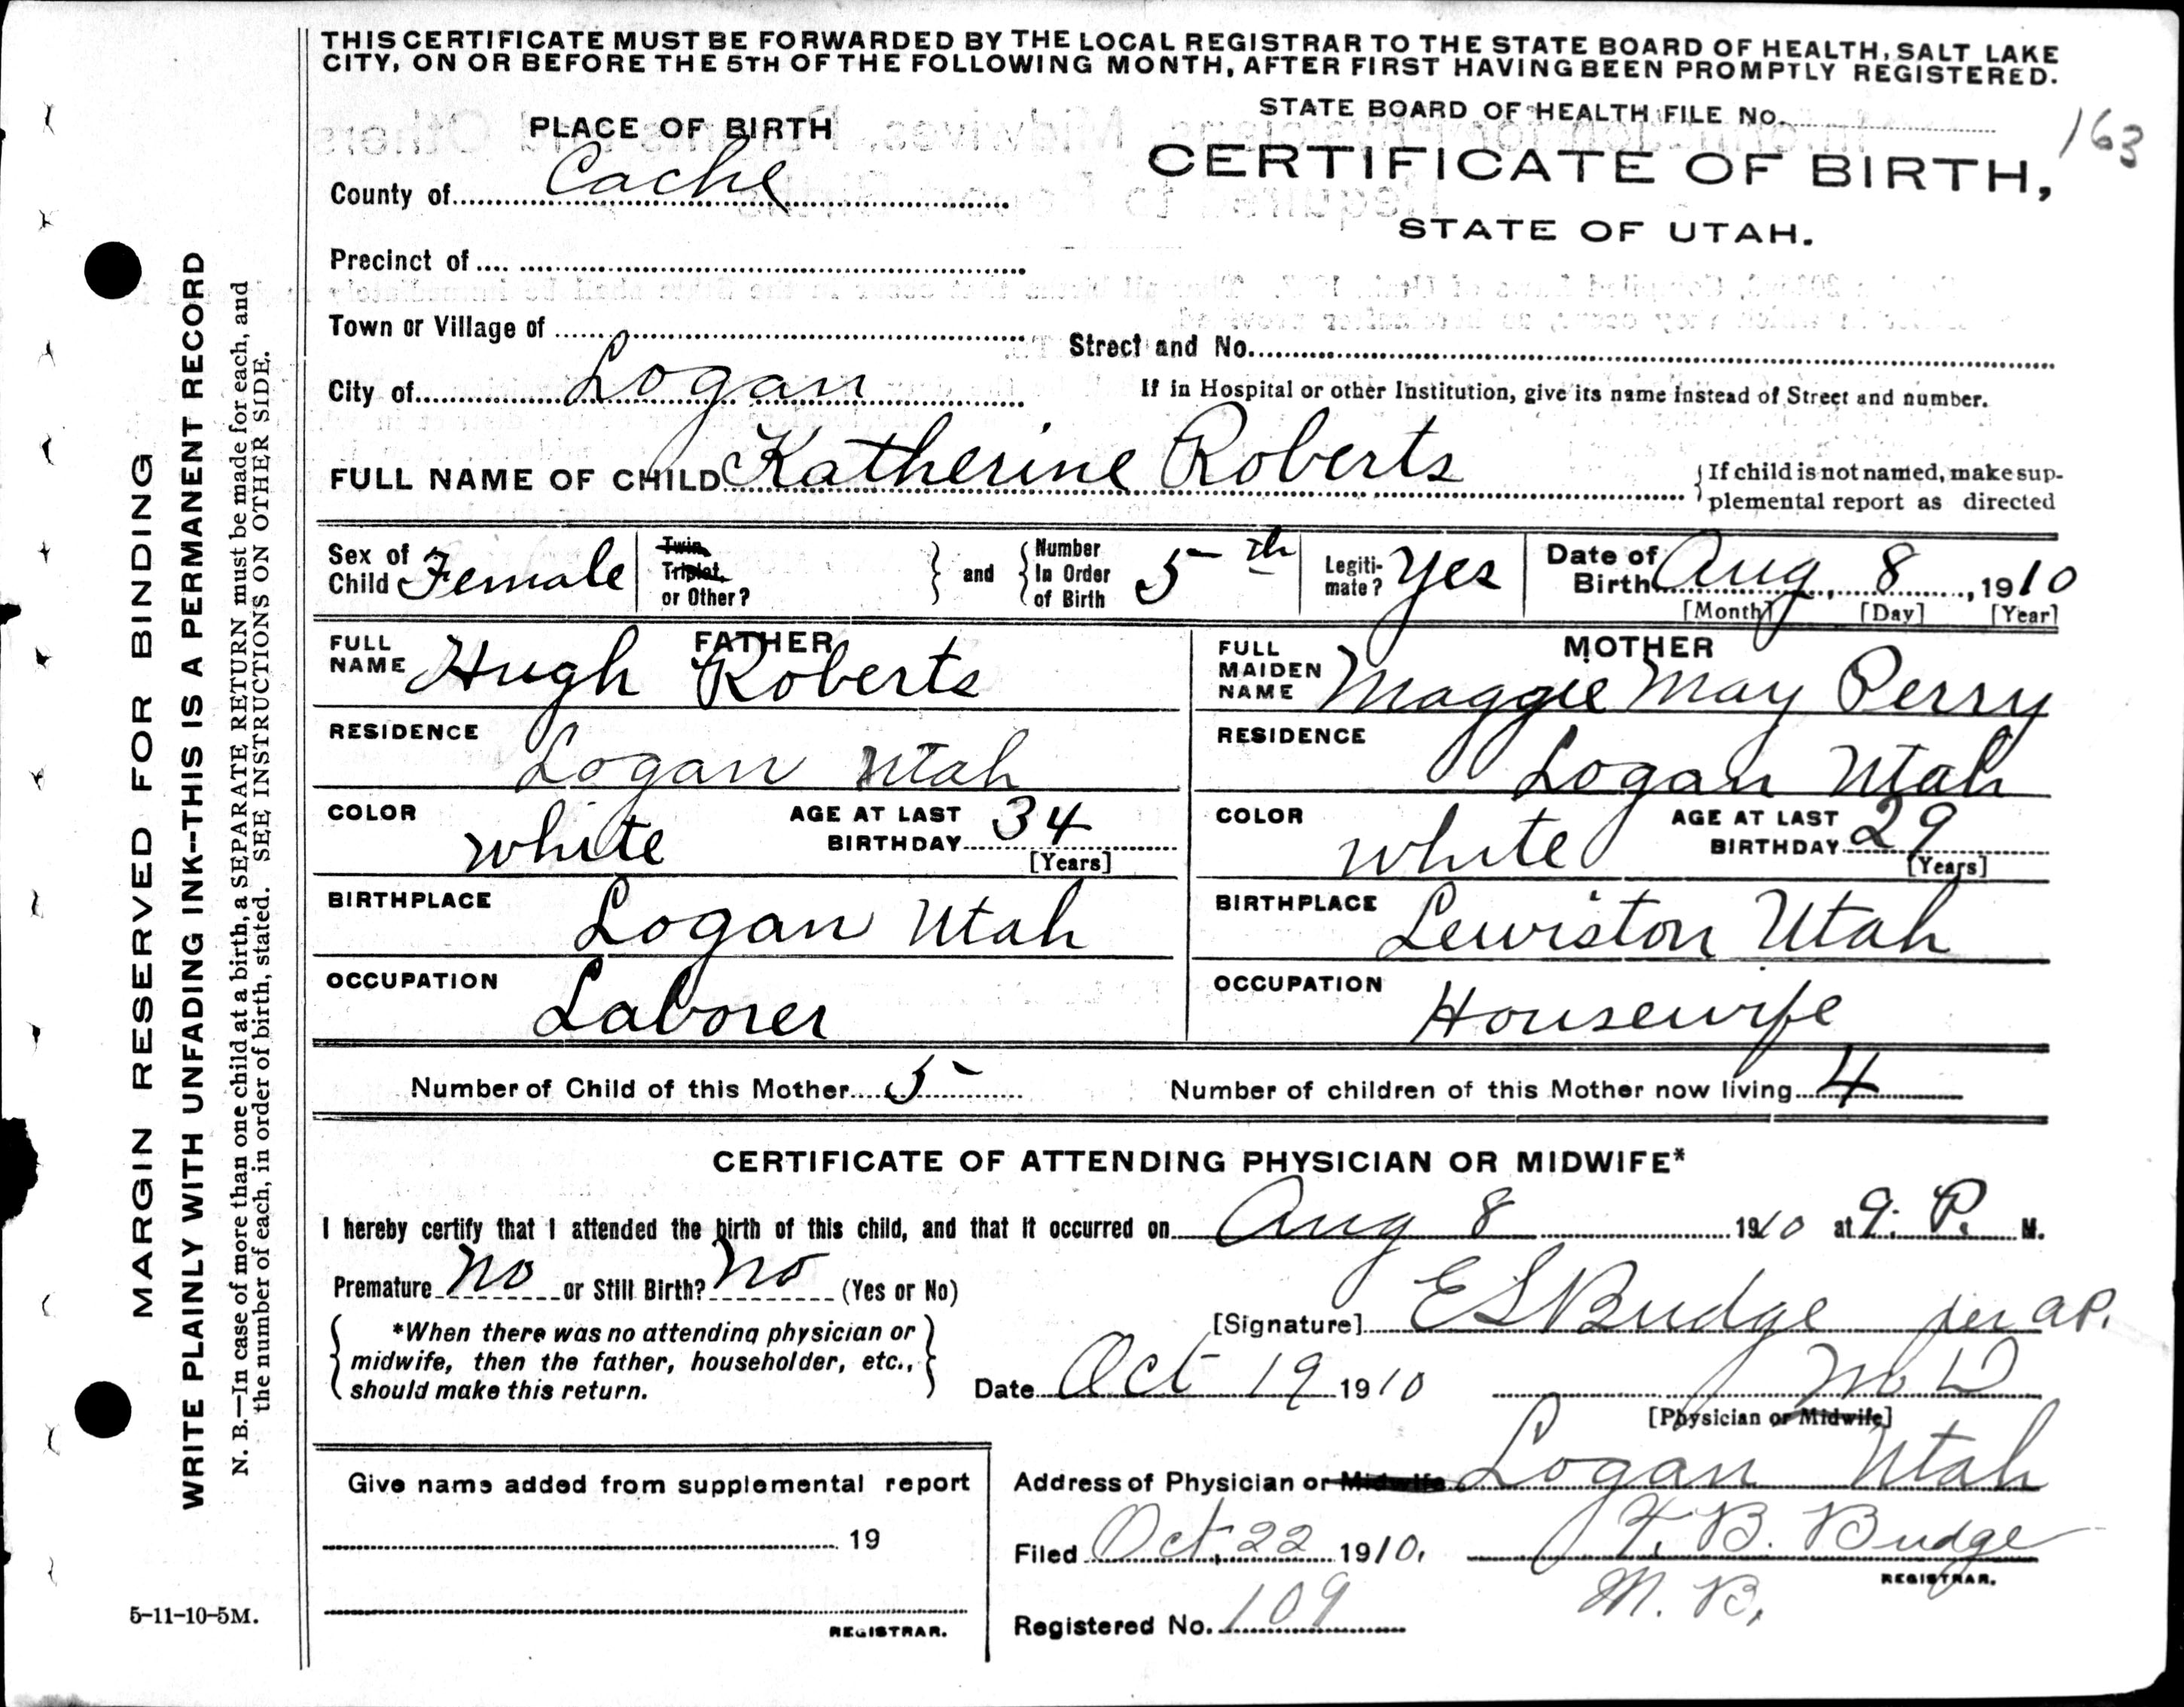 THIS CERTIFICATE MUST BE FORWARDED BY THE LOCAL REGISTRAR TO THE STATE BOARD OF HEALTH, SALT LAKE
CITY, ON OR BEFORE THE 5TH OF THE FOLLOWING MONTH, AFTER FIRST HAVING BEEN PROMPTLY REGISTERED.
STATE BOARD OF HEALTH FILE No. 163
PLACE OF BIRTH
CERTIFICATE OF BIRTH,
County of Cache
STATE OF UTAH.
Precinct of
Town or Village of
Street and No.
City of Logan
If in Hospital or other Institution, give its name instead of Street and number.
FULL NAME OF CHILD Katherine Roberts
If child is not named, make sup-
plemental report as directed
Sex of Child Female
Twin, Triplet, or Other?
and
Number In Order of Birth 5th
Legiti-mate? Yes
Date of Birth Aug 8, 1910
[Month] [Day] [Year]
FATHER
FULL NAME Hugh Roberts
RESIDENCE Logan Utah
COLOR white
AGE AT LAST BIRTHDAY 34
[Years]
BIRTHPLACE Logan Utah
OCCUPATION Laborer
MOTHER
FULL MAIDEN NAME Maggie May Perry
RESIDENCE Logan Utah
COLOR white
AGE AT LAST BIRTHDAY 29
[Years]
BIRTHPLACE Lewiston Utah
OCCUPATION Housewife
Number of Child of this Mother 5
Number of children of this Mother now living 4
CERTIFICATE OF ATTENDING PHYSICIAN OR MIDWIFE*
I hereby certify that I attended the birth of this child, and that it occurred on Aug 8 1910 at 9: P. M.
Premature No or Still Birth? No (Yes or No)
*When there was no attending physician or
midwife, then the father, householder, etc.,
should make this return.
[Signature] E S Budge per a P.
Date Oct 19 1910 M D
[Physician or Midwife]
Address of Physician or Midwife Logan Utah
Filed Oct. 22 1910. T. B. Budge
REGISTRAR.
M. B.
Registered No. 109
Give name added from supplemental report
19
REGISTRAR.
MARGIN RESERVED FOR BINDING
WRITE PLAINLY WITH UNFADING INK--THIS IS A PERMANENT RECORD
N. B.—In case of more than one child at a birth, a SEPARATE RETURN must be made for each, and
the number of each, in order of birth, stated. SEE INSTRUCTIONS ON OTHER SIDE.
5-11-10-5M.